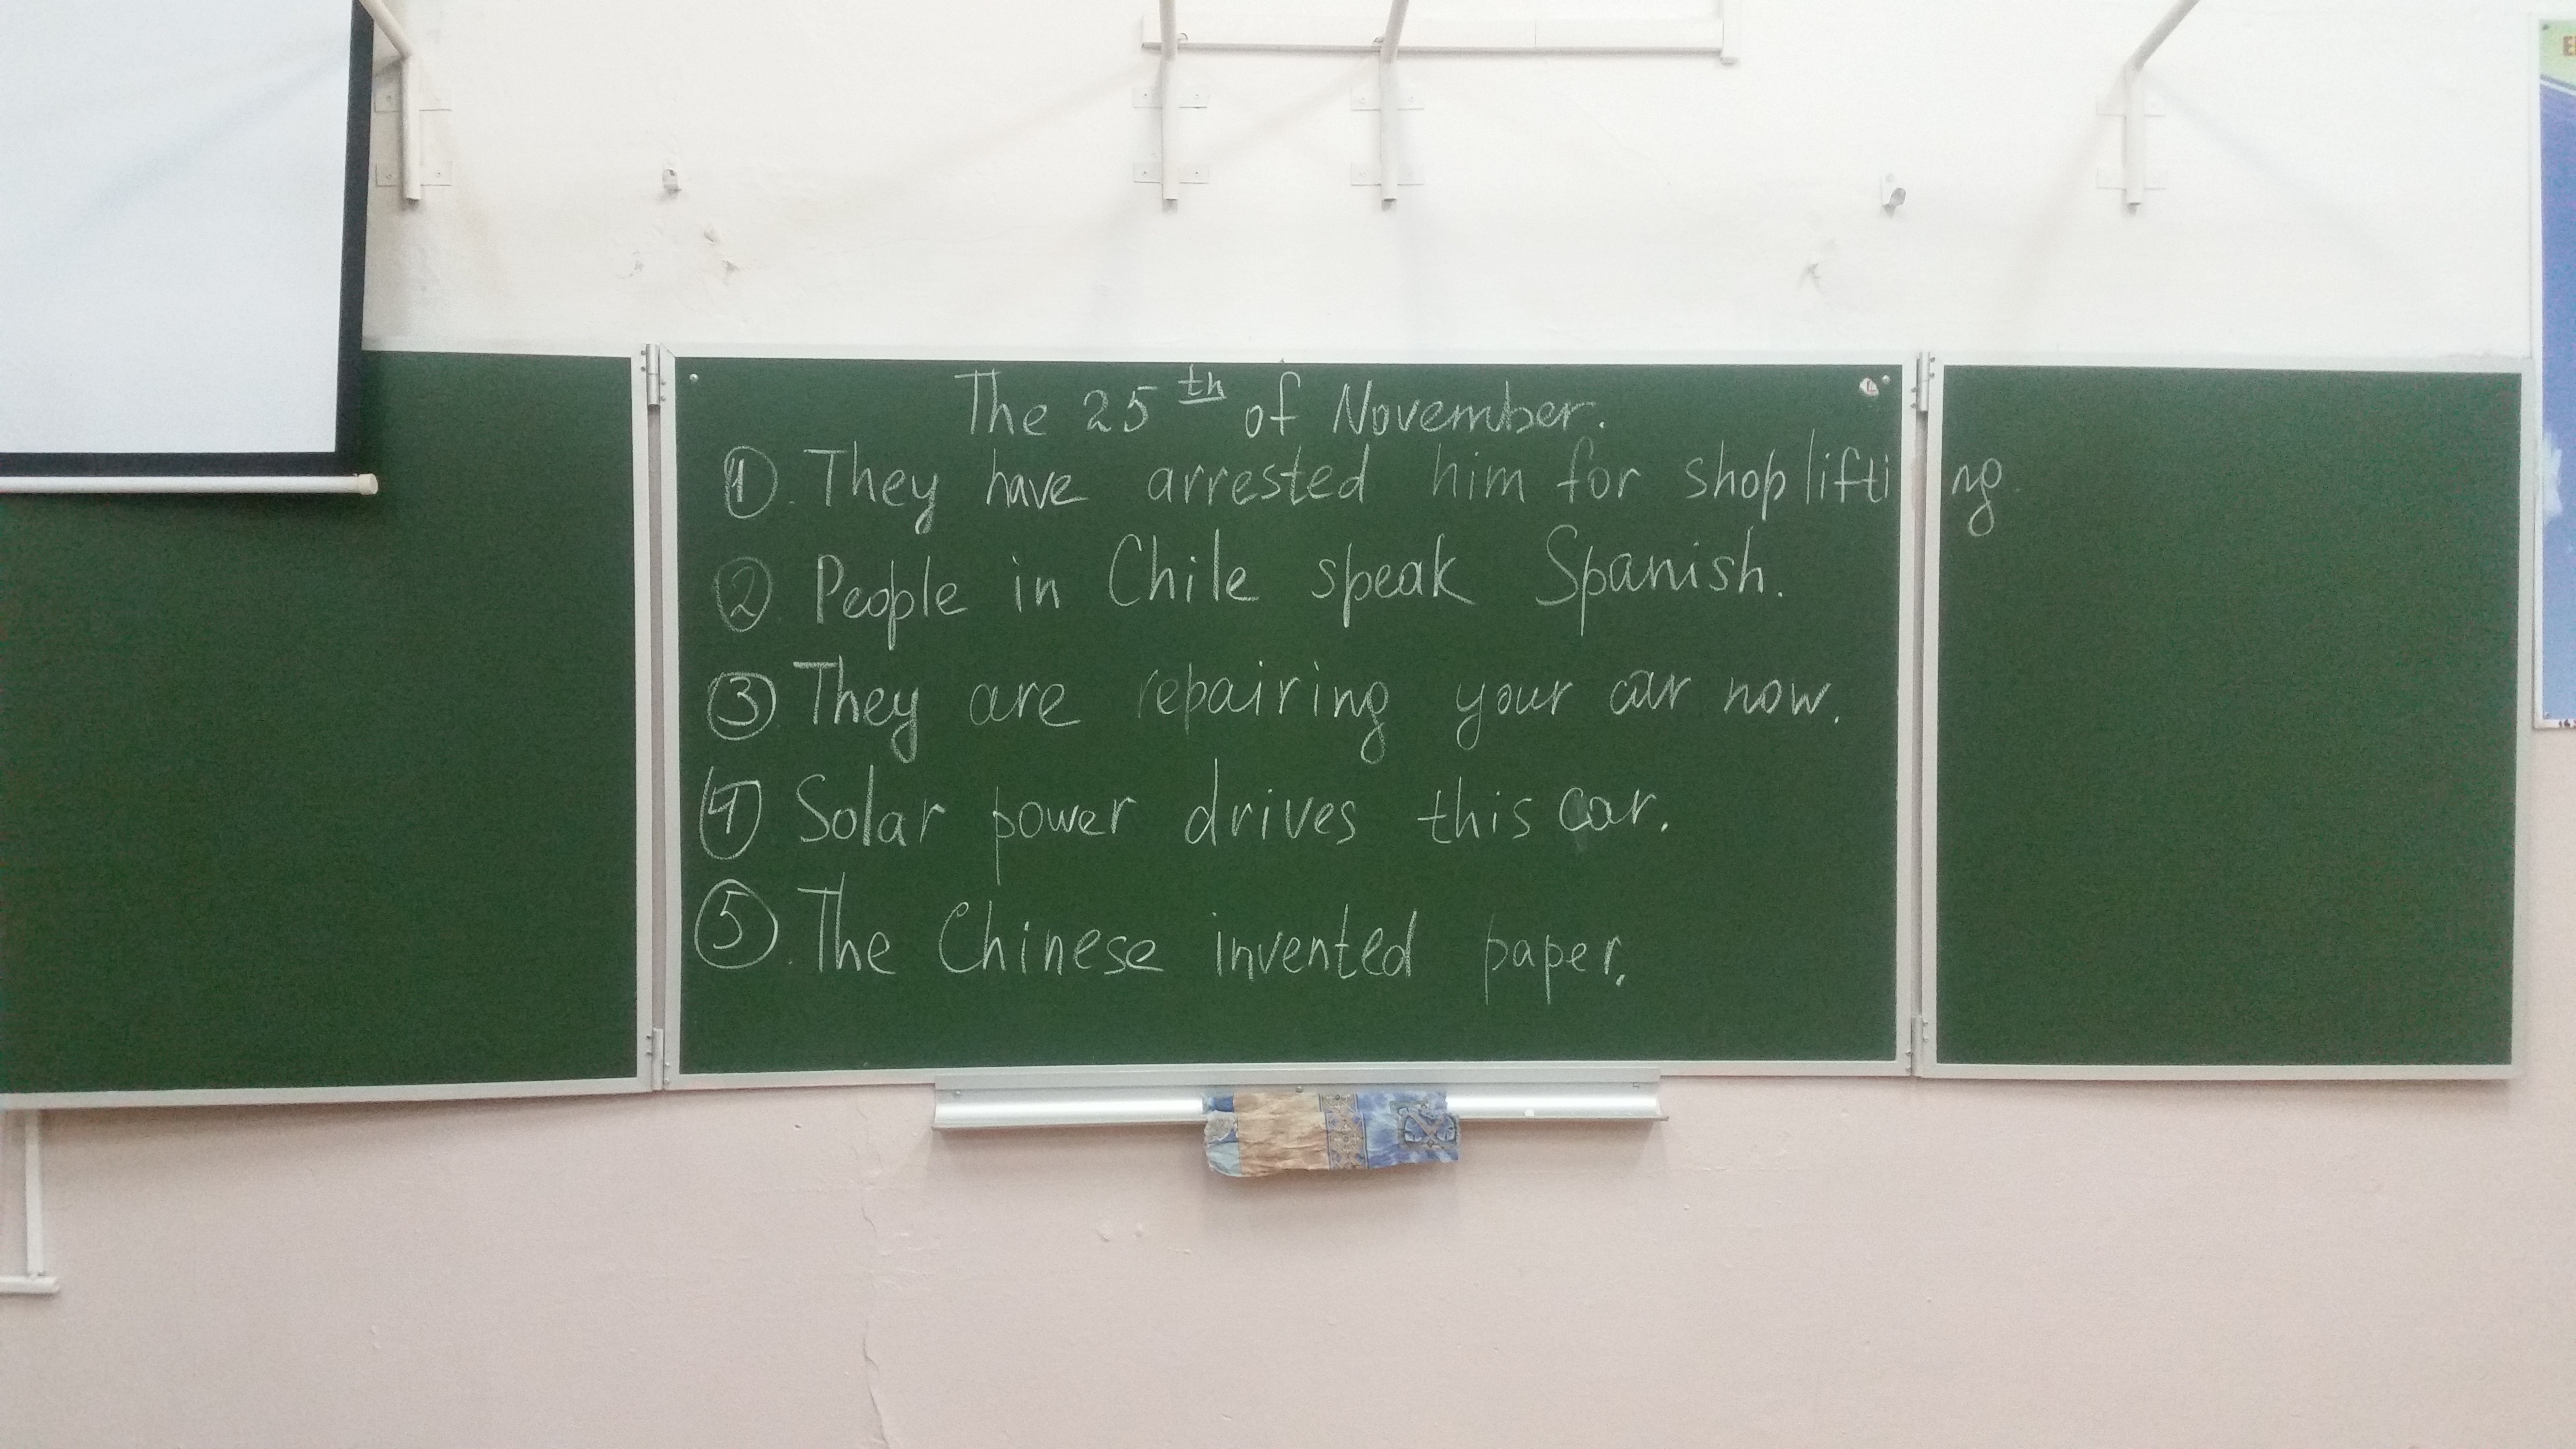 The 25th of November.
① They have arrested him for shoplifting.
② People in Chile speak Spanish.
③ They are repairing your car now.
④ Solar power drives this car.
⑤. The Chinese invented paper.